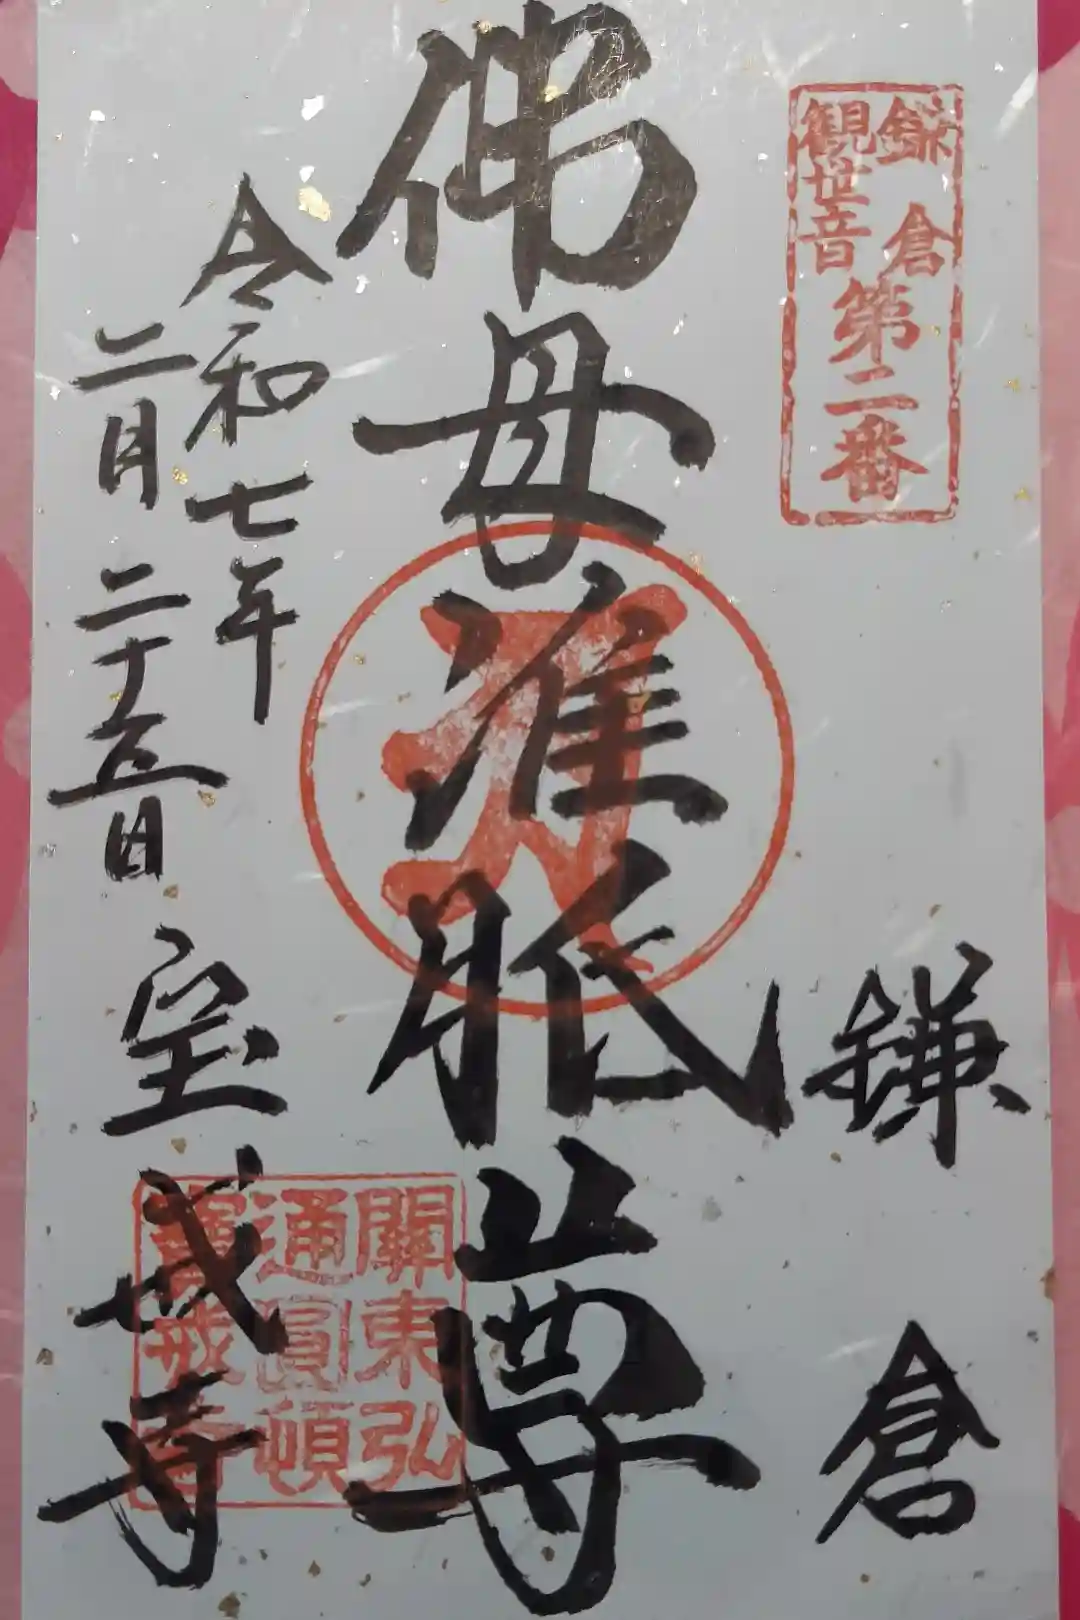 鎌倉
観世音
第二番
鎌倉
佛母准胝尊
令和七年
二月二十五日
宝戒寺
關東弘
通圓頓
寶戒寺